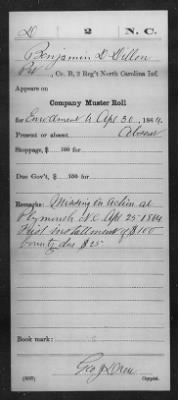 D 2 N.C.
Benjamin D. Dillon
Pvt, Co. B, 2 Reg't North Carolina Inf.
Appears on
Company Muster Roll
for Enrollment to Apr 30, 1864.
Present or absent Absent
Stoppage, $ 100 for
Due Gov't, $ 100 for
Remarks: Missing in action at
Plymouth N.C. Apr 25 1864
First installment of $100
bounty due $25
Book mark:
Geo J
(858) Copyist.